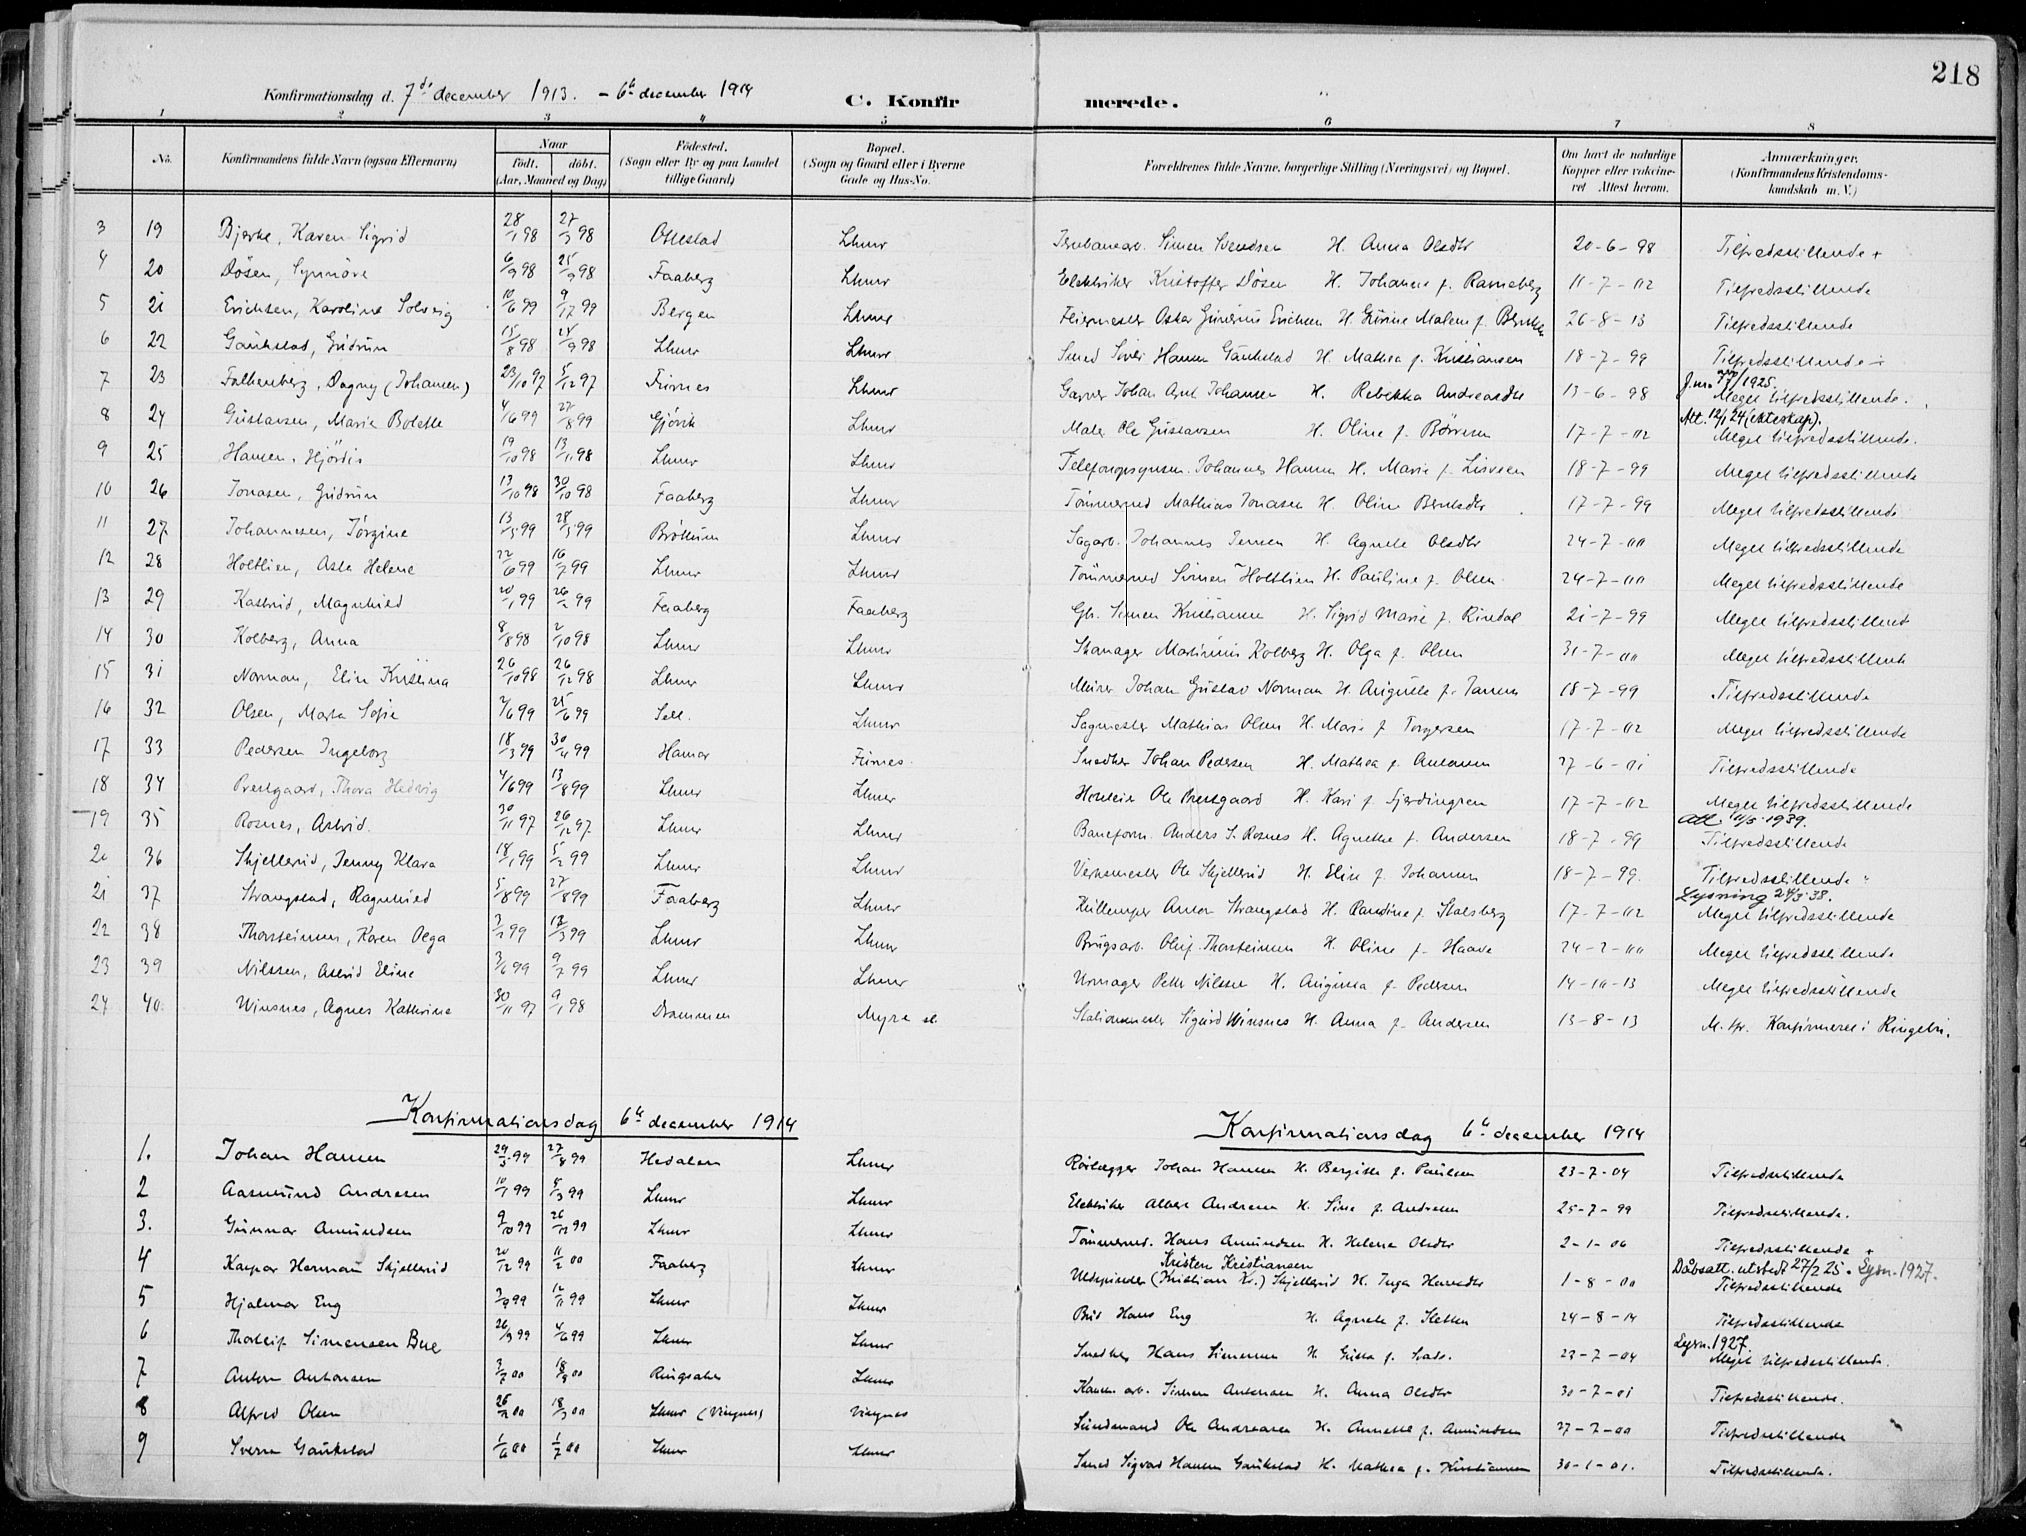 218
Konfirmationsdag d. 7de december 1913. – 6te december 1914 C. Konfirmerede.
1 2 3 4 5 6 7 8
No. Konfirmandens fulde Navn (ogsaa Efternavn) Naar født. døbt. (Aar, Maaned og Dag) Fødested. (Sogn eller By og paa Landet tillige Gaard) Bopæl. (Sogn og Gaard eller i Byerne Gade og Hus-No. Forældrenes fulde Navne, borgerlige Stilling (Næringsvei) og Bopæl. Om havt de naturlige Kopper eller vakcineret Attest herom. Anmærkninger. (Konfirmandens Kristendomskundskab m. V.)
3 19 Bjerke, Karen Sigrid 28/1 98 27/3 98 Ottestad Lhmr Jernbanearb. Simen Svendsen H. Anna Olsdtr 20-6-98 Tilfredsstillende +
4 20 Døsen, Synnøve 6/9 98 25/9 98 Faaberg Lhmr Elektriker Kristoffer Døsen H. Johanne f. Ranneberg 11-7-02 Tilfredsstillende
5 21 Erichsen, Karoline Solveig 10/6 99 9/17 99 Bergen Lhmr Feiermester Oskar Gunerius Erichsen H. Gurine Malene f. 26-8-13 Tilfredsstillende
6 22 Gaukstad, Gudrun 15/8 98 25/9 98 Lhmr Lhmr Smed Siver Hansen Gaukstad H. Mathea f. Kristiansen 18-7-99 Tilfredsstillende
7 23 Falkenberg, Dagny (Johansen) 23/10 97 5/12 97 Furnes Lhmr Garver Johan Johansen H. Rebekka Andreasdtr 13-6-98 Meget tilfredsstillende.
8 24 Gustavsen, Marie Bolette 4/6 99 27/8 99 Gjøvik Lhmr Maler Ole Gustavsen H. Oline f. Børresen 17-7-02 Att. 12/1 24 (ekteskap). Meget tilfredsstillende.
9 25 Hansen, Hjørdis 19/10 98 13/11 98 Lhmr Lhmr Telefonopsynsm. Johannes Hansen H. Marie f. 18-7-99 Meget tilfredsstillende
10 26 Jonasen, Gudrun 13/10 98 30/10 98 Faaberg Lhmr Tømmermd Mathias Jonasen H. Oline Berntsdtr 17-7-99 Meget tilfredsstillende
11 27 Johannesen, Jørgine 13/5 99 28/5 99 Brøttum Lhmr Sagarb. Johannes Jensen H. Agnete Olsdtr 24-7-00 Meget tilfredsstillende
12 28 Holtlien, Asta Helene 22/6 99 16/7 99 Lhmr Lhmr Tømmermd Simen Holtlien H. Pauline f. Olsen 24-7-00 Meget tilfredsstillende
13 29 Kastrud, Magnhild 20/1 99 26/2 99 Faaberg Faaberg Gb. Simen Kristiansen H. Sigrid Marie f. Rindal 21-7-99 Meget tilfredsstillende
14 30 Kolberg, Anna 8/8 98 2/10 98 Lhmr Lhmr Skomager Martinius Kolberg H. Olga f. Olsen 31-7-00 Meget tilfredsstillende
15 31 Norman, Elin Kristina 26/10 98 26/12 98 Lhmr Lhmr Murer Johan Gustav Norman H. Auguste f. Jansen 18-7-99 Tilfredsstillende
16 32 Olsen, Marta Sofie 7/6 99 25/6 99 Sell. Lhmr Sagmester Mathias Olsen H. Marie f. Torgersen 17-7-02 Meget tilfredsstillende
17 33 Pedersen Ingeborg 18/3 99 30/4 99 Hamar Furnes. Snedker Johan Pedersen H. Mathea f. Antonsen 27-6-01 Tilfredsstillende
18 34 Prestgaard, Thora Hedvig 4/6 99 13/8 99 Lhmr Lhmr Hoteleier Ole Prestgaard H. Kari f. Gjerdingren 17-7-02 Meget tilfredsstillende
19 35 Rosnes, Astrid. 30/11 97 26/12 97 Lhmr Lhmr Baneform. Anders S. Rosnes H. Agnethe f. Andersen 18-7-99 Att. 11/3 1939. Tilfredsstillende
20 36 Skjellerud, Jenny Klara 18/1 99 5/2 99 Lhmr Lhmr Verksmester Ole Skjellerud H. Elise f. Johansen 18-7-99. Tilfredsstillende
21 37 Strangstad, Ragnhild 5/8 99 27/8 99 Faaberg Lhmr Anton Strangstad H. Pauline f. Stalsberg 17-7-02 Lysning 24/3 38. Meget tilfredsstillende
22 38 Thorsteinsen, Karen Olga 3/2 99 12/3 99 Lhmr Lhmr Brugsarb. Oluf Thorsteinsen H. Oline f. Haave 24-7-00 Meget tilfredsstillende
23 39 Nilssen, Astrid Eline 3/6 99 9/7 99 Lhmr Lhmr Urmager Peter Nilssen H. Augusta f. Pedersen 14-10-13 Meget tilfredsstillende
24 40. Winsnes, Agnes Kathrine 30/11 97 9/1 98 Drammen Myre st. Stationsmester Sigurd Winsnes H. Anna f. Andersen 13-8-13 M. tfr. Konfirmeret i Ringebu.
Konfirmationsdag 6te december 1914 Konfirmationsdag 6te december 1914
1. Johan Hansen 29/5 99 27/8 99 Hedalen Lhmr Rørlægger Johan Hansen H. Bergitte f. Paulsen 23-7-04 Tilfredsstillende
2 Aasmund Andresen 10/1 99 5/3 99 Lhmr Lhmr Elektriker Albert Andresen H. Sina f. Andresen 25-7-99 Tilfredsstillende.
3. Gunnar Amundsen 9/10 99 26/12 99 Lhmr Lhmr Tømmermd. Hans Amundsen H. Helene Olsdtr 2-1-06 Tilfredsstillende +
4 Kaspar Herman Skjellerud 20/12 99 11/2 00 Faaberg Lhmr Kristen Kristiansen Uldspinder (Kristian Kr.) Skjellerud H. Inga Hansdtr 1-8-00 Dåbsatt. utstedt 27/2 25. Lysn. 1927. Tilfredsstillende
5 Hjalmar Eng 3/9 99 12/11 99 Lhmr Lhmr Bud Hans Eng H. Agnete f. Sletten 24-8-14 Tilfredsstillende
6 Thorleif Simensen Bue 26/3 99 4/6 99 Lhmr Lhmr Snedker Hans Simensen H. Gusta f. 23-7-04 Lysn. 1927. Meget tilfredsstillende.
7 Anton Antonsen 3/7 00 18/9 00 Ringsaker Lhmr Simen Antonsen H. Anna Olsdtr 30-7-01 Tilfredsstillende.
8 Alfred Olsen 26/2 00 18/3 00 Lhmr (Vingnes) Vingnes Sundmand Ole Andreasen H. Annette f. Amundsen 27-7-00 Tilfredsstillende
9 Sverre Gaukstad 1/6 00 1/7 00 Lhmr Lhmr Smed Sigvard Hansen Gaukstad H. Mathea f. Kristiansen 30-1-01. Tilfredsstillende.